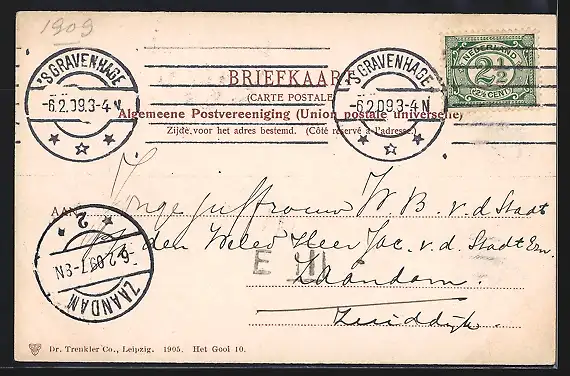 1909
'S GRAVENHAGE
-6.2.09.3-4 N
'S GRAVENHAGE
-6.2.09.3-4 N
NEDERLAND
2½
(2½ CENT)
BRIEFKAAR
(CARTE POSTALE
Algemeene Postvereeniging (Union postale universelle)
Zijde voor het adres bestemd. (Côté réservé à l'adresse.)
AAN Jonge juffrouw W. B. v. d. Stadt
den Weled Heer Jac. v. d. Stadt Ezn.
E III
Zaandam.
Zuiddijk.
ZAANDAM
2
-6.2.09.7-8 N
Dr. Trenkler Co., Leipzig. 1905. Het Gooi 10.